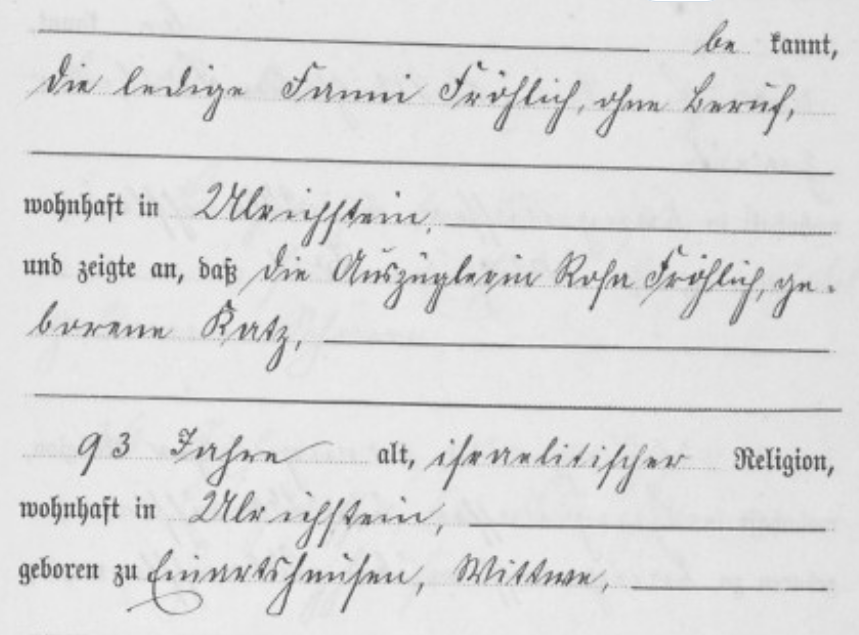 be kannt,
die ledige Fanni Fröhlich, ohne Beruf,
wohnhaft in Ulrichstein,
und zeigte an, daß die Auszüglerin Rosa Fröhlich, ge-
borene Katz,
93 Jahre alt, israelitischer Religion,
wohnhaft in Ulrichstein,
geboren zu Einartshausen, Wittwe,